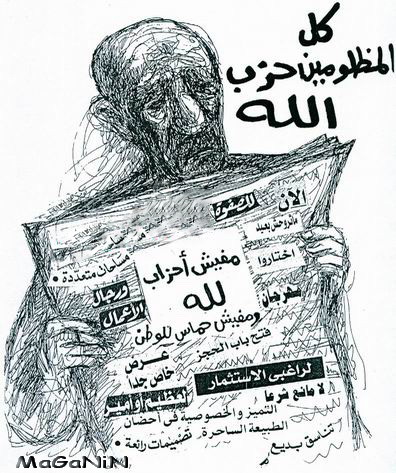 كل
المظلومين حزب
الله
الآن
للصفوة
ماتروحش بعيد
مساحات متعددة •
اختاروا
مفيش أحزاب
لله
ورجال
الأعمال
مهرجان
ومفيش حماس للوطن
فتح باب الحجز
عرض
خاص جدا
لراغبى الاستثمار
لا مانع شرعا
التميز والخصوصية فى أحضان
الطبيعة الساحرة
تصميمات رائعة •
تناسق بديع
MaGaNiN